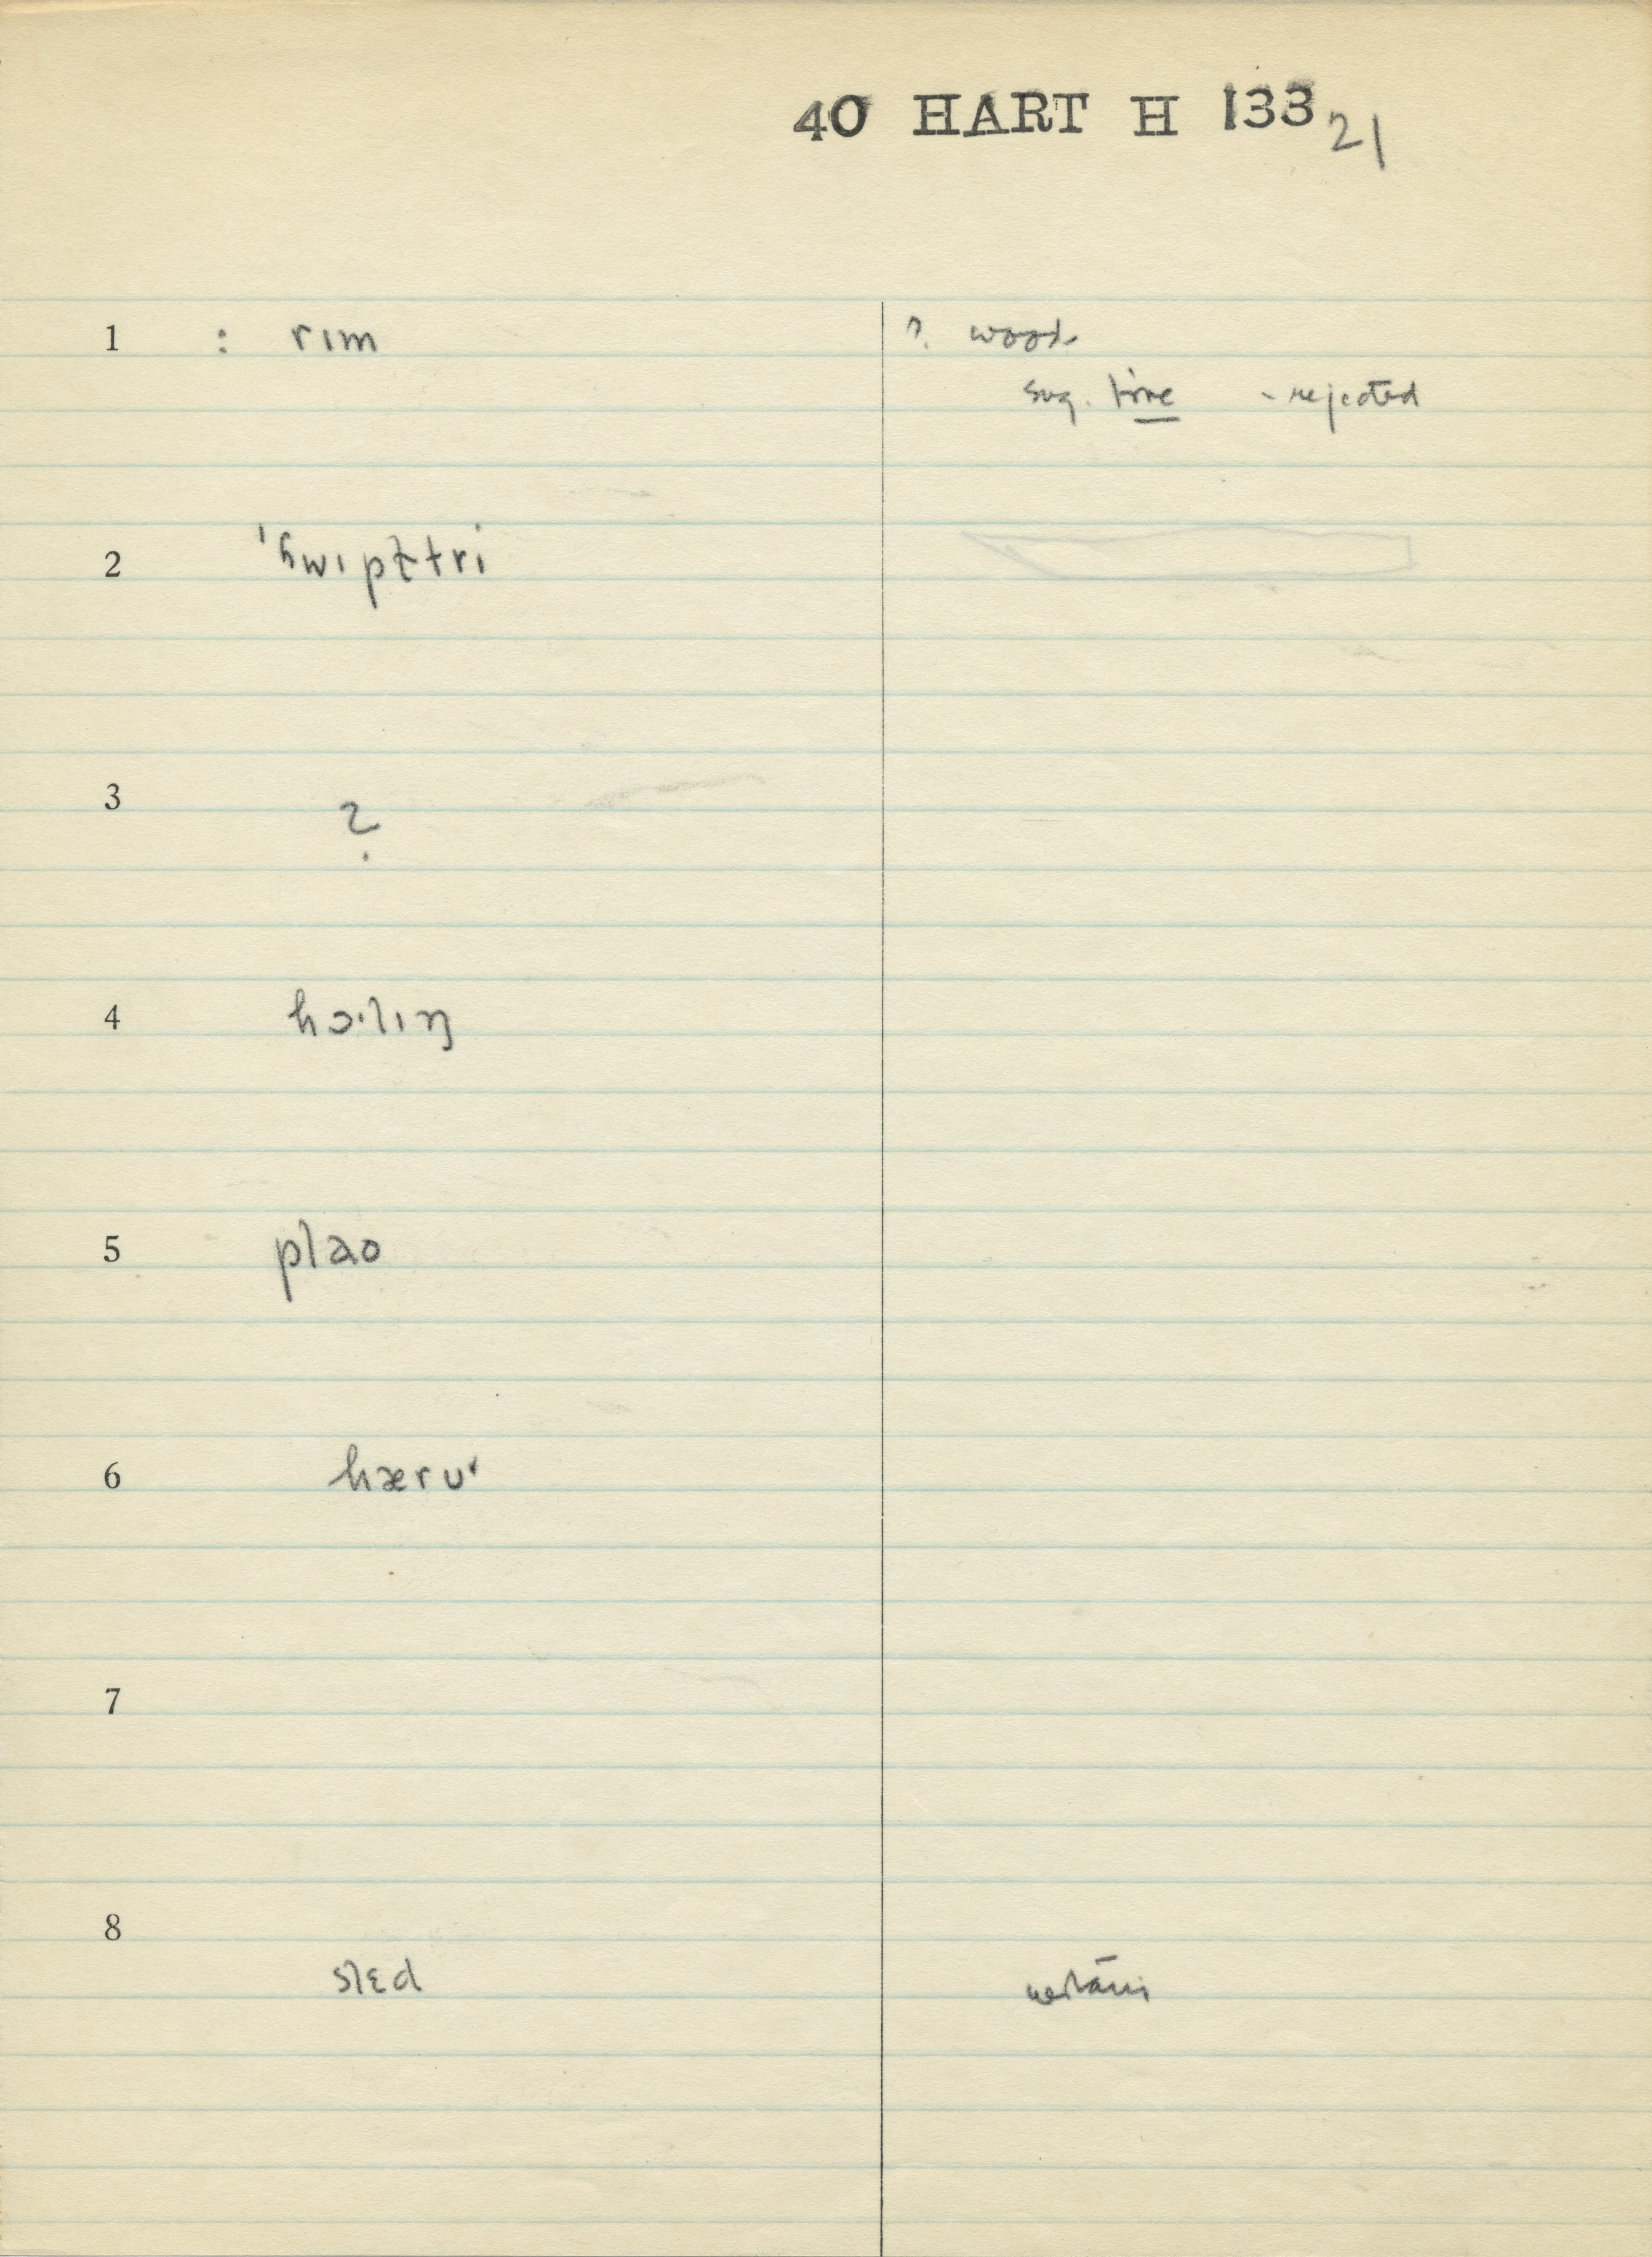 40 HART H 133 21
1 : rɪm ? wood
sug. tire - rejected
2
3 ?
4 hɔ·lɪŋ
5 plao
6 hærʊ
7
8
slɛd